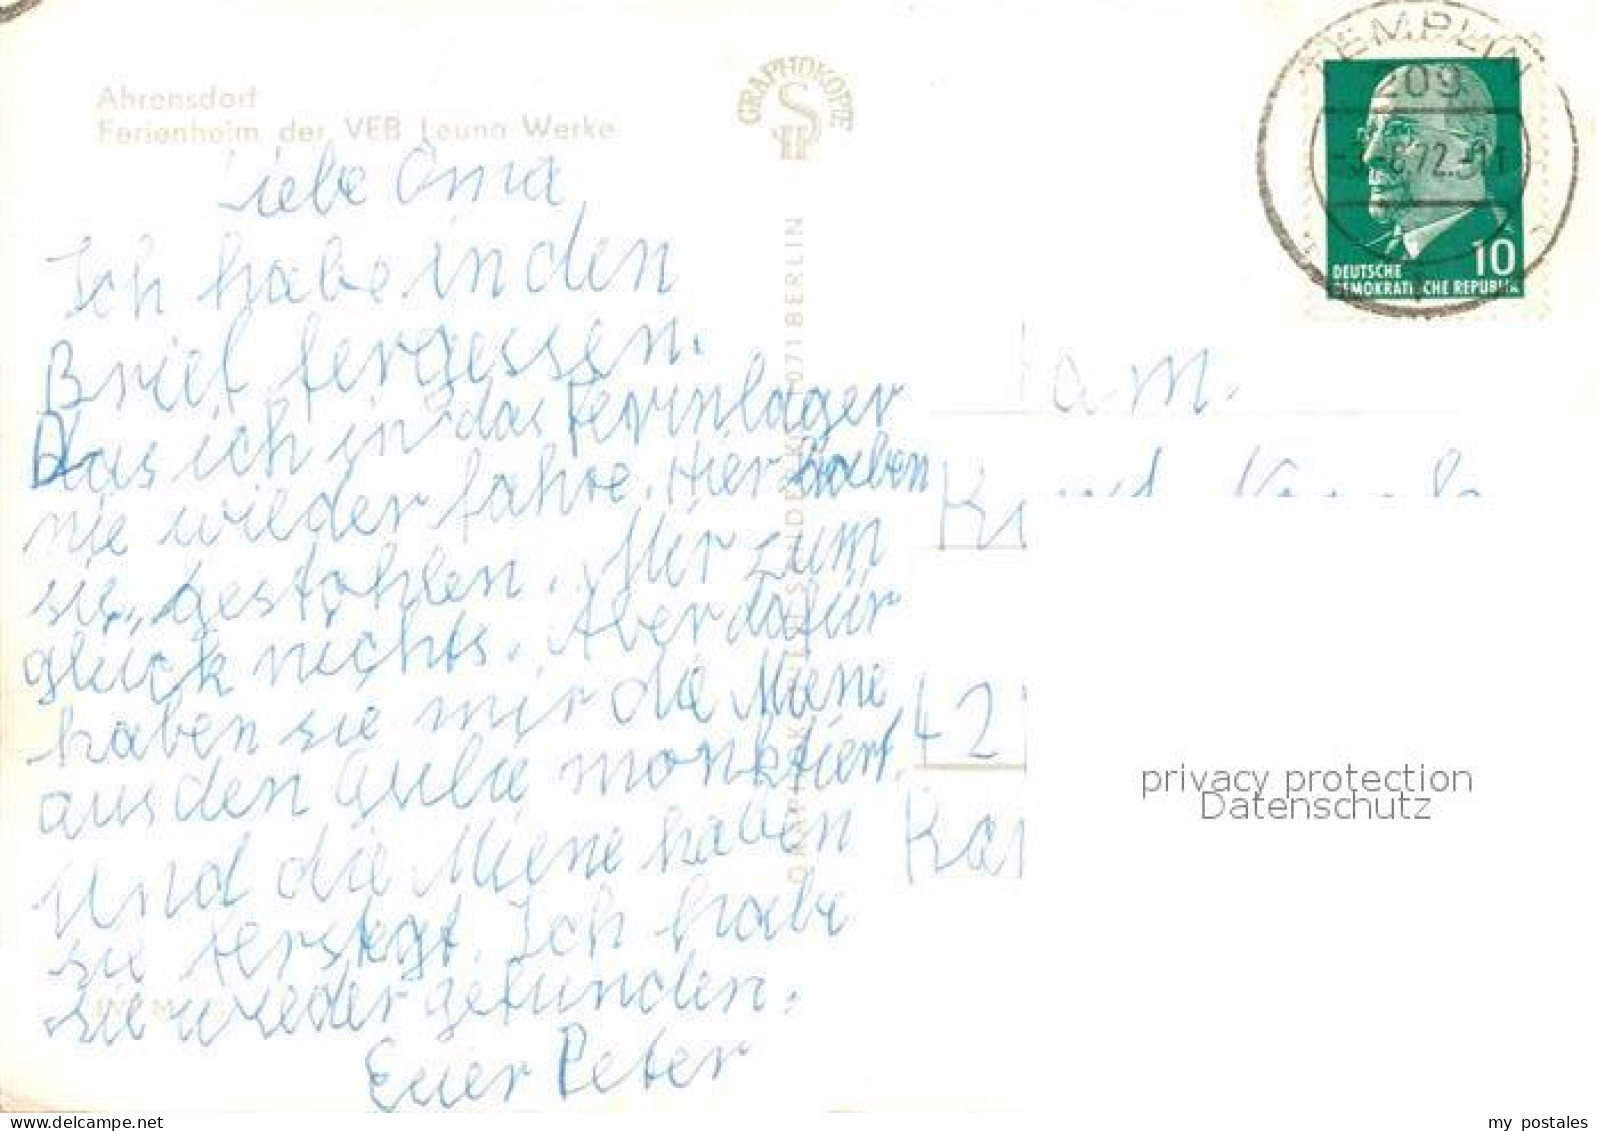 Ahrensdorf
Ferienheim der VEB Leuna-Werke
GRAPHOKOPIE
SH
TEMPLIN
209
72
10
DEUTSCHE
DEMOKRATISCHE REPUBLIK
Liebe Oma
Ich habe in den
Brief fergessen.
Das ich in das Ferinlager
nie wilder fahre. Hier haben
sie, gestohlen. Mer zum
glück nichts. Aber dafür
haben sie mir die Miene
aus den Qulie montiert.
Und die Miene haben
sie ferstegt. Ich habe
sie wieder gefunden.
Euer Peter
071 BERLIN
Fam.
42
Kar
privacy protection
Datenschutz
delcampe.net
my_postales